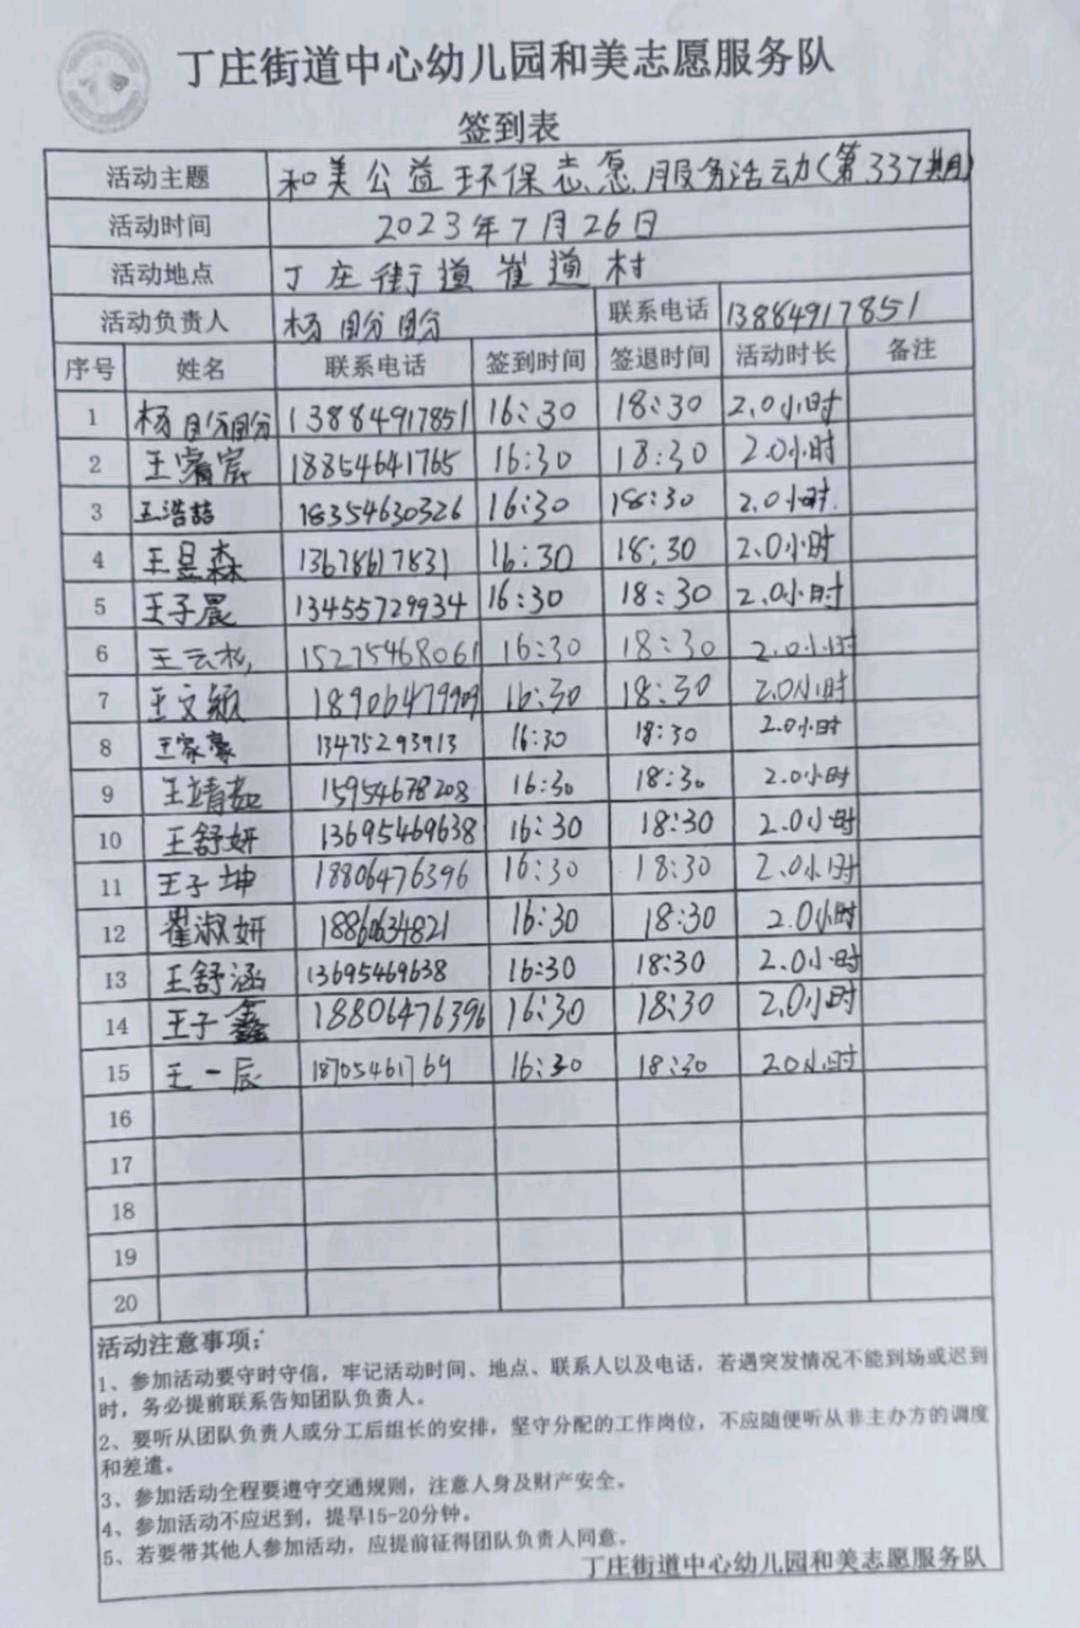 丁庄街道中心幼儿园和美志愿服务队
签到表
活动主题 和美公益环保志愿服务活动(第337期)
活动时间 2023年7月26日
活动地点 丁庄街道崔道村
活动负责人 杨盼盼 联系电话 13884917851
序号 姓名 联系电话 签到时间 签退时间 活动时长 备注
1 杨盼盼 13884917851 16:30 18:30 2.0小时
2 王睿宸 18854641765 16:30 18:30 2.0小时
3 王浩喆 18354630326 16:30 18:30 2.0小时.
4 王昱森 13678617831 16:30 18:30 2.0小时
5 王子晨 13455729934 16:30 18:30 2.0小时
6 王云杉 15275468061 16:30 18:30 2.0小时
7 王文颖 18906479909 16:30 18:30 2.0小时
8 王家豪 13475293913 16:30 18:30 2.0小时
9 王靖茹 15954678208 16:30 18:30 2.0小时
10 王舒妍 13695469638 16:30 18:30 2.0小时
11 王子坤 18806476396 16:30 18:30 2.0小时
12 崔淑妍 16:30 18:30 2.0小时
13 王舒涵 13695469638 16:30 18:30 2.0小时
14 王子鑫 18806476396 16:30 18:30 2.0小时
15 王一辰 18705461769 16:30 18:30 2.0小时
16
17
18
19
20
活动注意事项:
1、参加活动要守时守信，牢记活动时间、地点、联系人以及电话，若遇突发情况不能到场或迟到
时，务必提前联系告知团队负责人。
2、要听从团队负责人或分工后组长的安排，坚守分配的工作岗位，不应随便听从非主办方的调度
和差遣。
3、参加活动全程要遵守交通规则，注意人身及财产安全。
4、参加活动不应迟到，提早15-20分钟。
5、若要带其他人参加活动，应提前征得团队负责人同意。
丁庄街道中心幼儿园和美志愿服务队